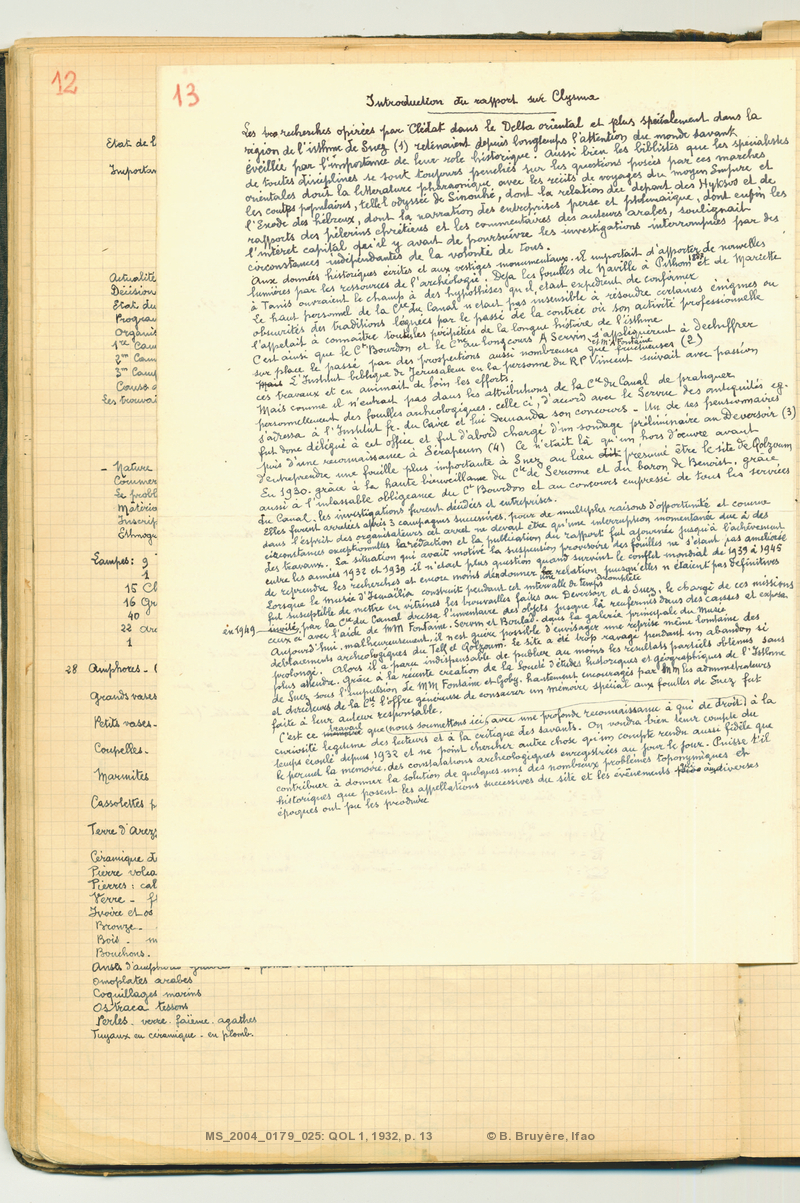 12
Etat de l
Importan
Actualité
Décision
Etat du
Program
Organis
1re Cam
2me Cam
3me Camp
Cours a
Les trouvai
- Nature
Commer
Le probl
Matéria
Inscrip
Ethnog
Lampes: 9
1
15 Cl
16 Gr
40
22 are
1
28 Amphores - (
Grands vases
Petits vases -
Coupelles -
Marmites
Cassolettes p
Terre d'Arezz
Céramique d
Pierre volca
Pierres : cal
Verre - f
Ivoire et os
Bronze -
Bois - m
Bouchons.
Anses d'amphores
Omoplates arabes
Coquillages marins
Ostraca tessons
Perles - verre. faïence. agathes
Tuyaux en céramique. en plomb.
13
Introduction du rapport sur Clysma
Les recherches opérées par Clédat dans le Delta oriental et plus spécialement dans la
région de l'isthme de Suez (1) retenaient depuis longtemps l'attention du monde savant
éveillée par l'importance de leur role historique. Aussi bien les biblistes que les spécialistes
de toutes disciplines se sont toujours penchés sur les questions posées par ces marches
orientales dont la litterature pharaonique avec les récits de voyages du moyen Empire et
les contes populaires, telle l'odyssée de Sinouhé, dont la relation du depart des Hyksos et de
l'Exode des hébreux, dont la narration des entreprises perse et ptolemaïque, dont enfin les
rapports des pèlerins chrétiens et les commentaires des auteurs arabes, soulignait
l'intéret capital qu'il y avait de poursuivre les investigations interrompues par des
circonstances indépendantes de la volonté de tous.
Aux données historiques écrites et aux vestiges monumentaux. il importait d'apporter de nouvelles
lumières par les ressources de l'archéologie. Deja les fouilles de Naville à Pithom et de Mariette
à Tanis ouvraient le champ à des hypothèses qu'il etait expedient de confirmer
Le haut personnel de la Cie du Canal n'etait pas insensible à résoudre certaines énigmes ou
obscurités des traditions léguées par le passé de la contrée où son activité professionnelle
l'appelait à connaître toutes les péripéties de la longue histoire de l'isthme
C'est ainsi que le Ct Bourdon et le Cne au long cours A Servin s'appliquèrent à dechiffrer
et M. A. Fontaine
sur place le passé par des prospections aussi nombreuses que fructueuses (2)
Mais L'Institut biblique de Jerusalem en la personne du R P Vincent suivait avec passion
ces travaux et en animait de loin les efforts.
Mais comme il n'entrait pas dans les attributions de la Cie du Canal de pratiquer
personnellement des fouilles archéologiques. celle ci, d'accord avec le Service des antiquités eg.
s'adressa à l'Institut fr. du Caire et lui demanda son concours - Un de ses pensionnaires
fut donc délégué à cet office et fut d'abord chargé d'un sondage préliminaire au Deversoir (3)
puis d'une reconnaissance à Serapeum (4) Ce n'était là qu'un hors d'œuvre avant
d'entreprendre une fouille plus importante à Suez au lieu dit presumé être le site de Qolzoum
En 1930. grâce à la haute bienveillance du Cte de Serionne et du baron de Benoist, grâce
aussi à l'inlassable obligeance du Ct Bourdon et au concours empressé de tous les services
du Canal, les investigations furent décidées et entreprises.
Elles furent arretées après 3 campagnes successives, pour de multiples raisons d'opportunité et comme
dans l'esprit des organisateurs cet arret ne devait être qu'une interruption momentanée due à des
circonstances exceptionnelles la rédaction et la publication du rapport fut ajournée jusqu'à l'achèvement
des travaux. La situation qui avait motivé la suspension provisoire des fouilles ne s'étant pas améliorée
entre les années 1932 et 1939 il n'etait plus question quand survint le conflit mondial de 1939 à 1945
de reprendre les recherches et encore moins de donner une relation puisqu'elles n'étaient pas définitives
Lorsque le musée d'Ismailia construit pendant cet intervalle de temps complete
fut susceptible de mettre en vitrines les trouvailles faites au Deversoir et à Suez, le chargé de ces missions
en 1949 invité, par la Cie du Canal dressa l'inventaire des objets jusque là renfermés dans des caisses et exposa
ceux ci avec l'aide de MM Fontaine. Servin et Boulad. dans la galerie principale du Musée
Aujourd'hui, malheureusement, il n'est guère possible d'envisager une reprise même lointaine des
deblaiements archeologiques du Tell el Qolzoum. Le site a été trop ravagé pendant un abandon si
prolongé. Alors il a paru indispensable de publier au moins les résultats partiels obtenus sans
plus attendre. Grâce à la récente création de la Société d'études historiques et géographiques de l'Isthme
de Suez sous l'impulsion de MM Fontaine et Goby, hautement encouragés par MM les administrateurs
et directeurs de la Cie l'offre généreuse de consacrer un mémoire spécial aux fouilles de Suez fut
faite à leur auteur responsable.
travail
C'est ce mémoire que (nous soumettons ici, avec une profonde reconnaissance à qui de droit) à la
curiosité legitime des lecteurs et à la critique des savants. On voudra bien tenir compte du
temps écoulé depuis 1932 et ne point chercher autre chose qu'un compte rendu aussi fidèle que
le permet la mémoire, des constatations archeologiques enregistrées au jour le jour. Puisse t'il
contribuer à donner la solution de quelques uns des nombreux problèmes toponymiques et
historiques que posent les appellations successives du site et les événements qui aux diverses
époques ont pu les produire
MS_2004_0179_025: QOL 1, 1932, p. 13 © B. Bruyère, Ifao